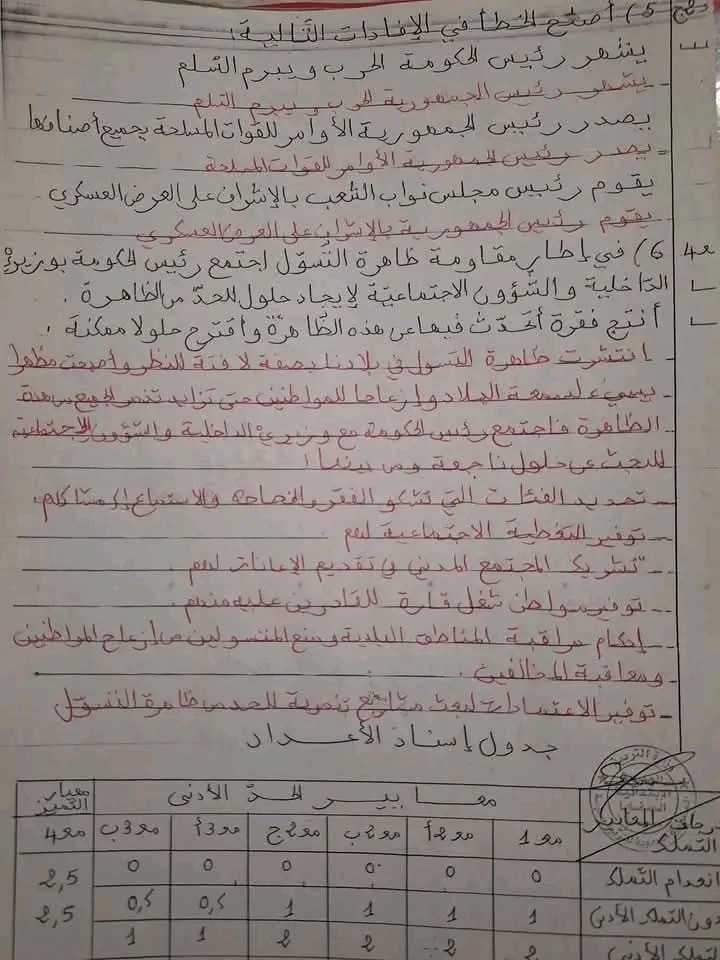 مع2ج 5) أصلح الخطأ في الإفادات التّالية:
يشهر رئيس الحكومة الحرب ويبرم السّلم
- يشهر رئيس الجمهورية الحرب ويبرم السّلم
يصدر رئيس الجمهورية الأوامر للقوات المسلحة بجميع أصنافها
- يصدر رئيس الجمهورية الأوامر للقوات المسلحة
يقوم رئيس مجلس نواب الشعب بالإشراف على العرض العسكري
- يقوم رئيس الجمهورية بالإشراف على العرض العسكري
مع4 6) في إطار مقاومة ظاهرة التّسوّل اجتمع رئيس الحكومة بوزيريْ
الدّاخلية والشّؤون الاجتماعيّة لإيجاد حلول للحدّ من الظاهرة.
أنتج فقرة أتحدّث فيها عن هذه الظّاهرة وأقترح حلولا ممكنة.
- انتشرت ظاهرة التسول في بلادنا بصفة لافتة للنظر وأصبحت مظهرا
يسيء لسمعة البلاد وإزعاجا للمواطنين حتى تزايد تذمر الجميع من هذه
الظاهرة فاجتمع رئيس الحكومة مع وزيريْ الداخلية والشّؤون الإجتماعية
للبحث عن حلول ناجعة ومن بينها:
- تحديد الفئات التي تشكو الفقر والخصاصة والاستماع إلى مشاكلهم.
- توفير التغطية الاجتماعية لهم.
- تشريك المجتمع المدني في تقديم الإعانات لهم.
- توفير مواطن شغل قارة للقادرين عليه منهم.
- إحكام مراقبة المناطق البلدية ومنع المتسولين من إزعاج المواطنين
ومعاقبة المخالفين.
- توفير الاعتمادات لبعث مشاريع تنموية للحد من ظاهرة التسوّل
جدول إسناد الأعداد
معايير الحدّ الأدنى معيار التميز
درجات التملك المعايير مع1 مع2أ مع2ب مع2ج مع3أ مع3ب مع4
انعدام التّملك 0 0 0 0 0 0 2,5
دون التملك الأدنى 1 1 1 1 0,5 0,5 2,5
التملك الأدنى 2 2 2 2 1 1